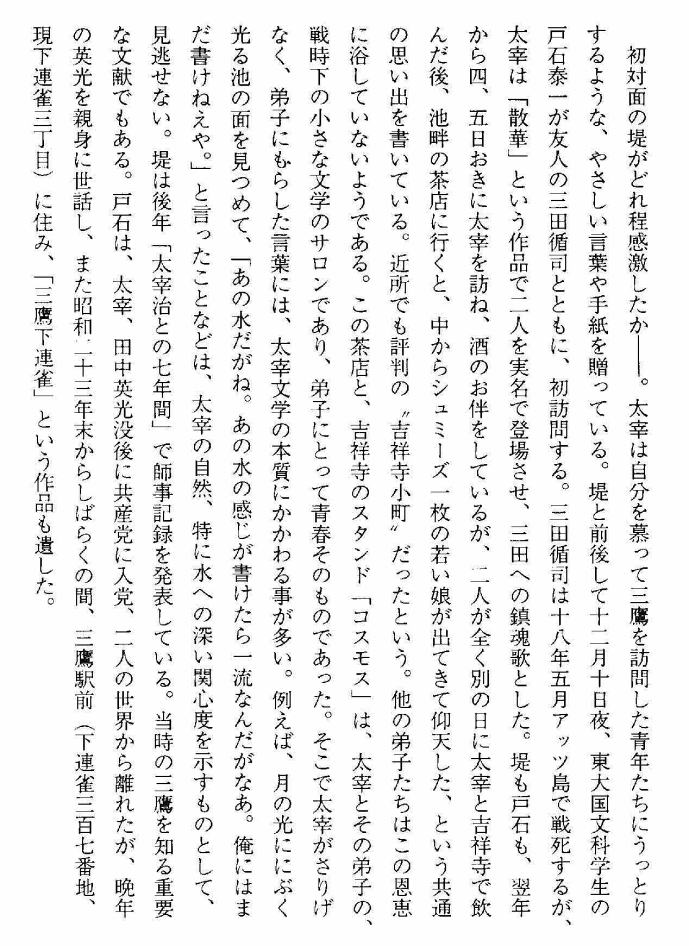 初対面の堤がどれ程感激したか――。太宰は自分を慕って三鷹を訪問した青年たちにうっとり
するような、やさしい言葉や手紙を贈っている。堤と前後して十二月十日夜、東大国文科学生の
戸石泰一が友人の三田循司とともに、初訪問する。三田循司は十八年五月アッツ島で戦死するが、
太宰は「散華」という作品で二人を実名で登場させ、三田への鎮魂歌とした。堤も戸石も、翌年
から四、五日おきに太宰を訪ね、酒のお伴をしているが、二人が全く別の日に太宰と吉祥寺で飲
んだ後、池畔の茶店に行くと、中からシュミーズ一枚の若い娘が出てきて仰天した、という共通
の思い出を書いている。近所でも評判の〝吉祥寺小町〟だったという。他の弟子たちはこの恩恵
に浴していないようである。この茶店と、吉祥寺のスタンド「コスモス」は、太宰とその弟子の、
戦時下の小さな文学のサロンであり、弟子にとって青春そのものであった。そこで太宰がさりげ
なく、弟子にもらした言葉には、太宰文学の本質にかかわる事が多い。例えば、月の光ににぶく
光る池の面を見つめて、「あの水だがね。あの水の感じが書けたら一流なんだがなあ。俺にはま
だ書けねえや。」と言ったことなどは、太宰の自然、特に水への深い関心度を示すものとして、
見逃せない。堤は後年「太宰治との七年間」で師事記録を発表している。当時の三鷹を知る重要
な文献でもある。戸石は、太宰、田中英光没後に共産党に入党、二人の世界から離れたが、晩年
の英光を親身に世話し、また昭和二十三年末からしばらくの間、三鷹駅前（下連雀三百七番地、
現下連雀三丁目）に住み、「三鷹下連雀」という作品も遺した。